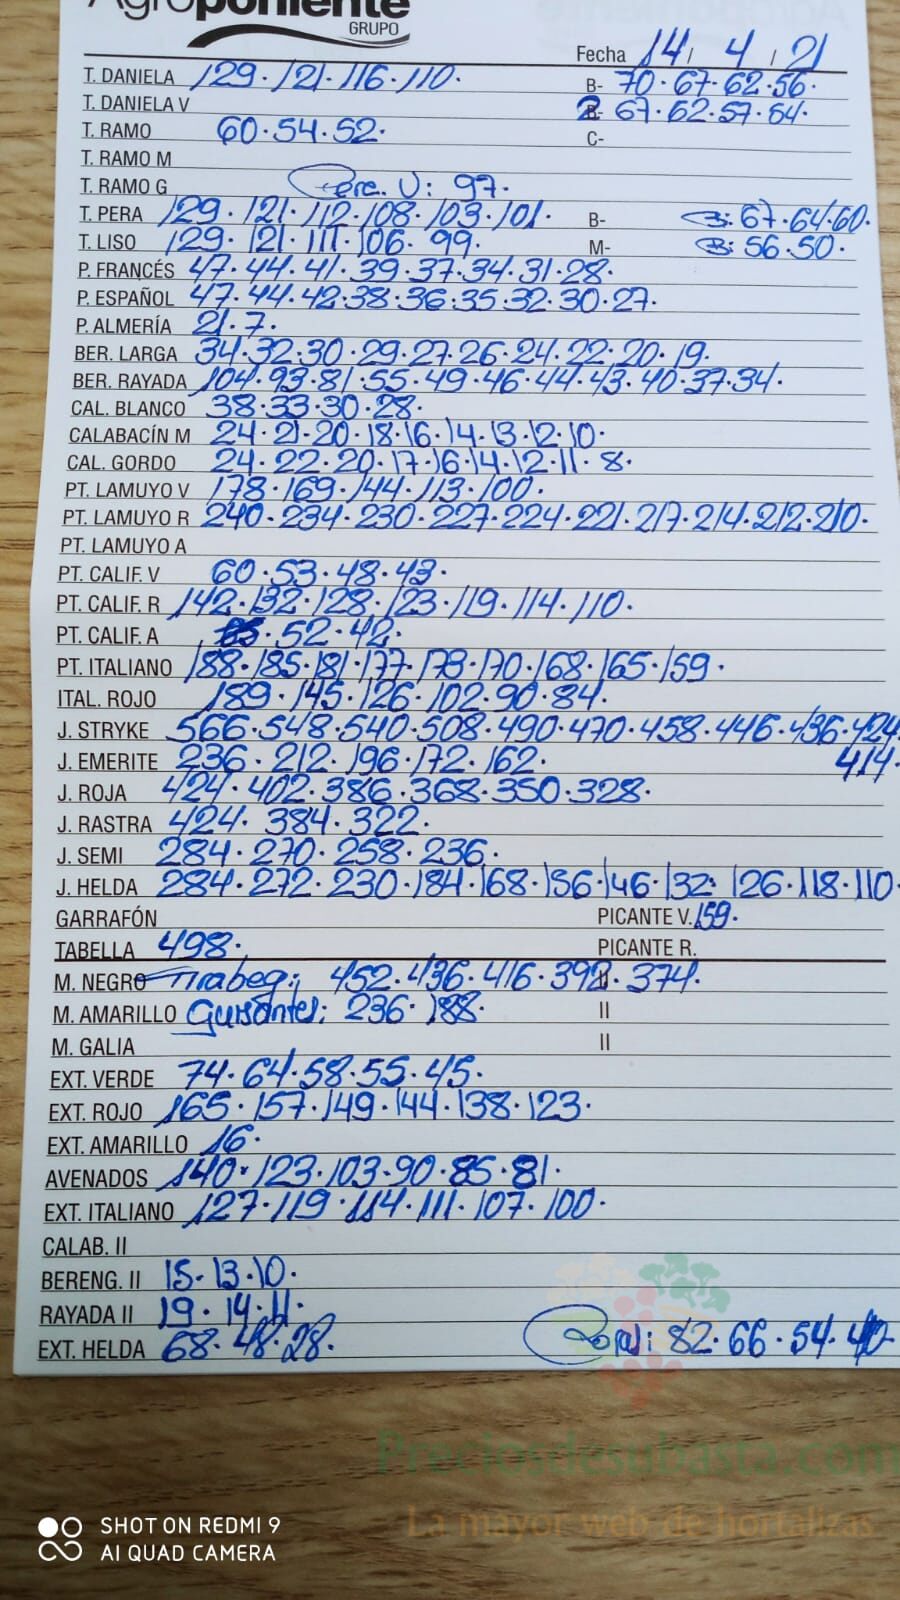 Agroponiente
GRUPO
Fecha 14 / 4 / 21
T. DANIELA 129 · 121 · 116 · 110 · B- 70 · 67 · 62 · 56 ·
T. DANIELA V 2 B- 67 · 62 · 57 · 54 ·
T. RAMO 60 · 54 · 52 · C-
T. RAMO M
T. RAMO G Perc. U: 97 ·
T. PERA 129 · 121 · 112 · 108 · 103 · 101 · B- B: 67 · 64 · 60 ·
T. LISO 129 · 121 · 111 · 106 · 99 · M- B: 56 · 50 ·
P. FRANCÉS 47 · 44 · 41 · 39 · 37 · 34 · 31 · 28 ·
P. ESPAÑOL 47 · 44 · 42 · 38 · 36 · 35 · 32 · 30 · 27 ·
P. ALMERÍA 21 · 7 ·
BER. LARGA 34 · 32 · 30 · 29 · 27 · 26 · 24 · 22 · 20 · 19 ·
BER. RAYADA 104 · 93 · 81 · 55 · 49 · 46 · 44 · 43 · 40 · 37 · 34 ·
CAL. BLANCO 38 · 33 · 30 · 28 ·
CALABACÍN M 24 · 21 · 20 · 18 · 16 · 14 · 13 · 12 · 10 ·
CAL. GORDO 24 · 22 · 20 · 17 · 16 · 14 · 12 · 11 · 8 ·
PT. LAMUYO V 178 · 169 · 144 · 113 · 100 ·
PT. LAMUYO R 240 · 234 · 230 · 227 · 224 · 221 · 217 · 214 · 212 · 210 ·
PT. LAMUYO A
PT. CALIF. V 60 · 53 · 48 · 43 ·
PT. CALIF. R 142 · 132 · 128 · 123 · 119 · 114 · 110 ·
PT. CALIF. A · 52 · 42 ·
PT. ITALIANO 188 · 185 · 181 · 177 · 173 · 170 · 168 · 165 · 159 ·
ITAL. ROJO 189 · 145 · 126 · 102 · 90 · 84 ·
J. STRYKE 566 · 548 · 540 · 508 · 490 · 470 · 458 · 446 · 436 · 424
J. EMERITE 236 · 212 · 196 · 172 · 162 · 414 ·
J. ROJA 424 · 402 · 386 · 368 · 350 · 328 ·
J. RASTRA 424 · 384 · 322 ·
J. SEMI 284 · 270 · 258 · 236 ·
J. HELDA 284 · 272 · 230 · 184 · 168 · 156 · 146 · 132 · 126 · 118 · 110 ·
GARRAFÓN PICANTE V. 159 ·
TABELLA 498 · PICANTE R.
M. NEGRO Tirabeq: 452 · 436 · 416 · 392 · 374 · II
M. AMARILLO Guisantes: 236 · 188 · II
M. GALIA II
EXT. VERDE 74 · 64 · 58 · 55 · 45 ·
EXT. ROJO 165 · 157 · 149 · 144 · 138 · 123 ·
EXT. AMARILLO 16 ·
AVENADOS 140 · 123 · 103 · 90 · 85 · 81 ·
EXT. ITALIANO 127 · 119 · 114 · 111 · 107 · 100 ·
CALAB. II
BERENG. II 15 · 13 · 10 ·
RAYADA II 19 · 14 · 11 ·
EXT. HELDA 68 · 48 · 28 · 82 · 66 · 54 · 42
Preciosdesubasta.com
La mayor web de hortalizas
SHOT ON REDMI 9
AI QUAD CAMERA